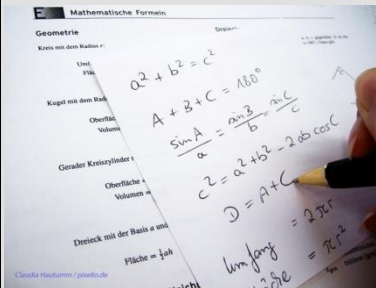 E Mathematische Formeln
Geometrie
Kreis mit dem Radius r:
Kugel mit dem Radi
Oberfläc
Volum
Gerader Kreiszylinder
Oberfläche
Volumen =
Dreieck mit der Basis a und
Fläche = ½ah
a² + b² = c²
A + B + C = 180°
sin A / a = sin B / b = sin C / c
c² = a² + b² - 2ab cos C
D = A + C
Umfang = 2πr
= πr²
Claudia Hautumm / pixelio.de